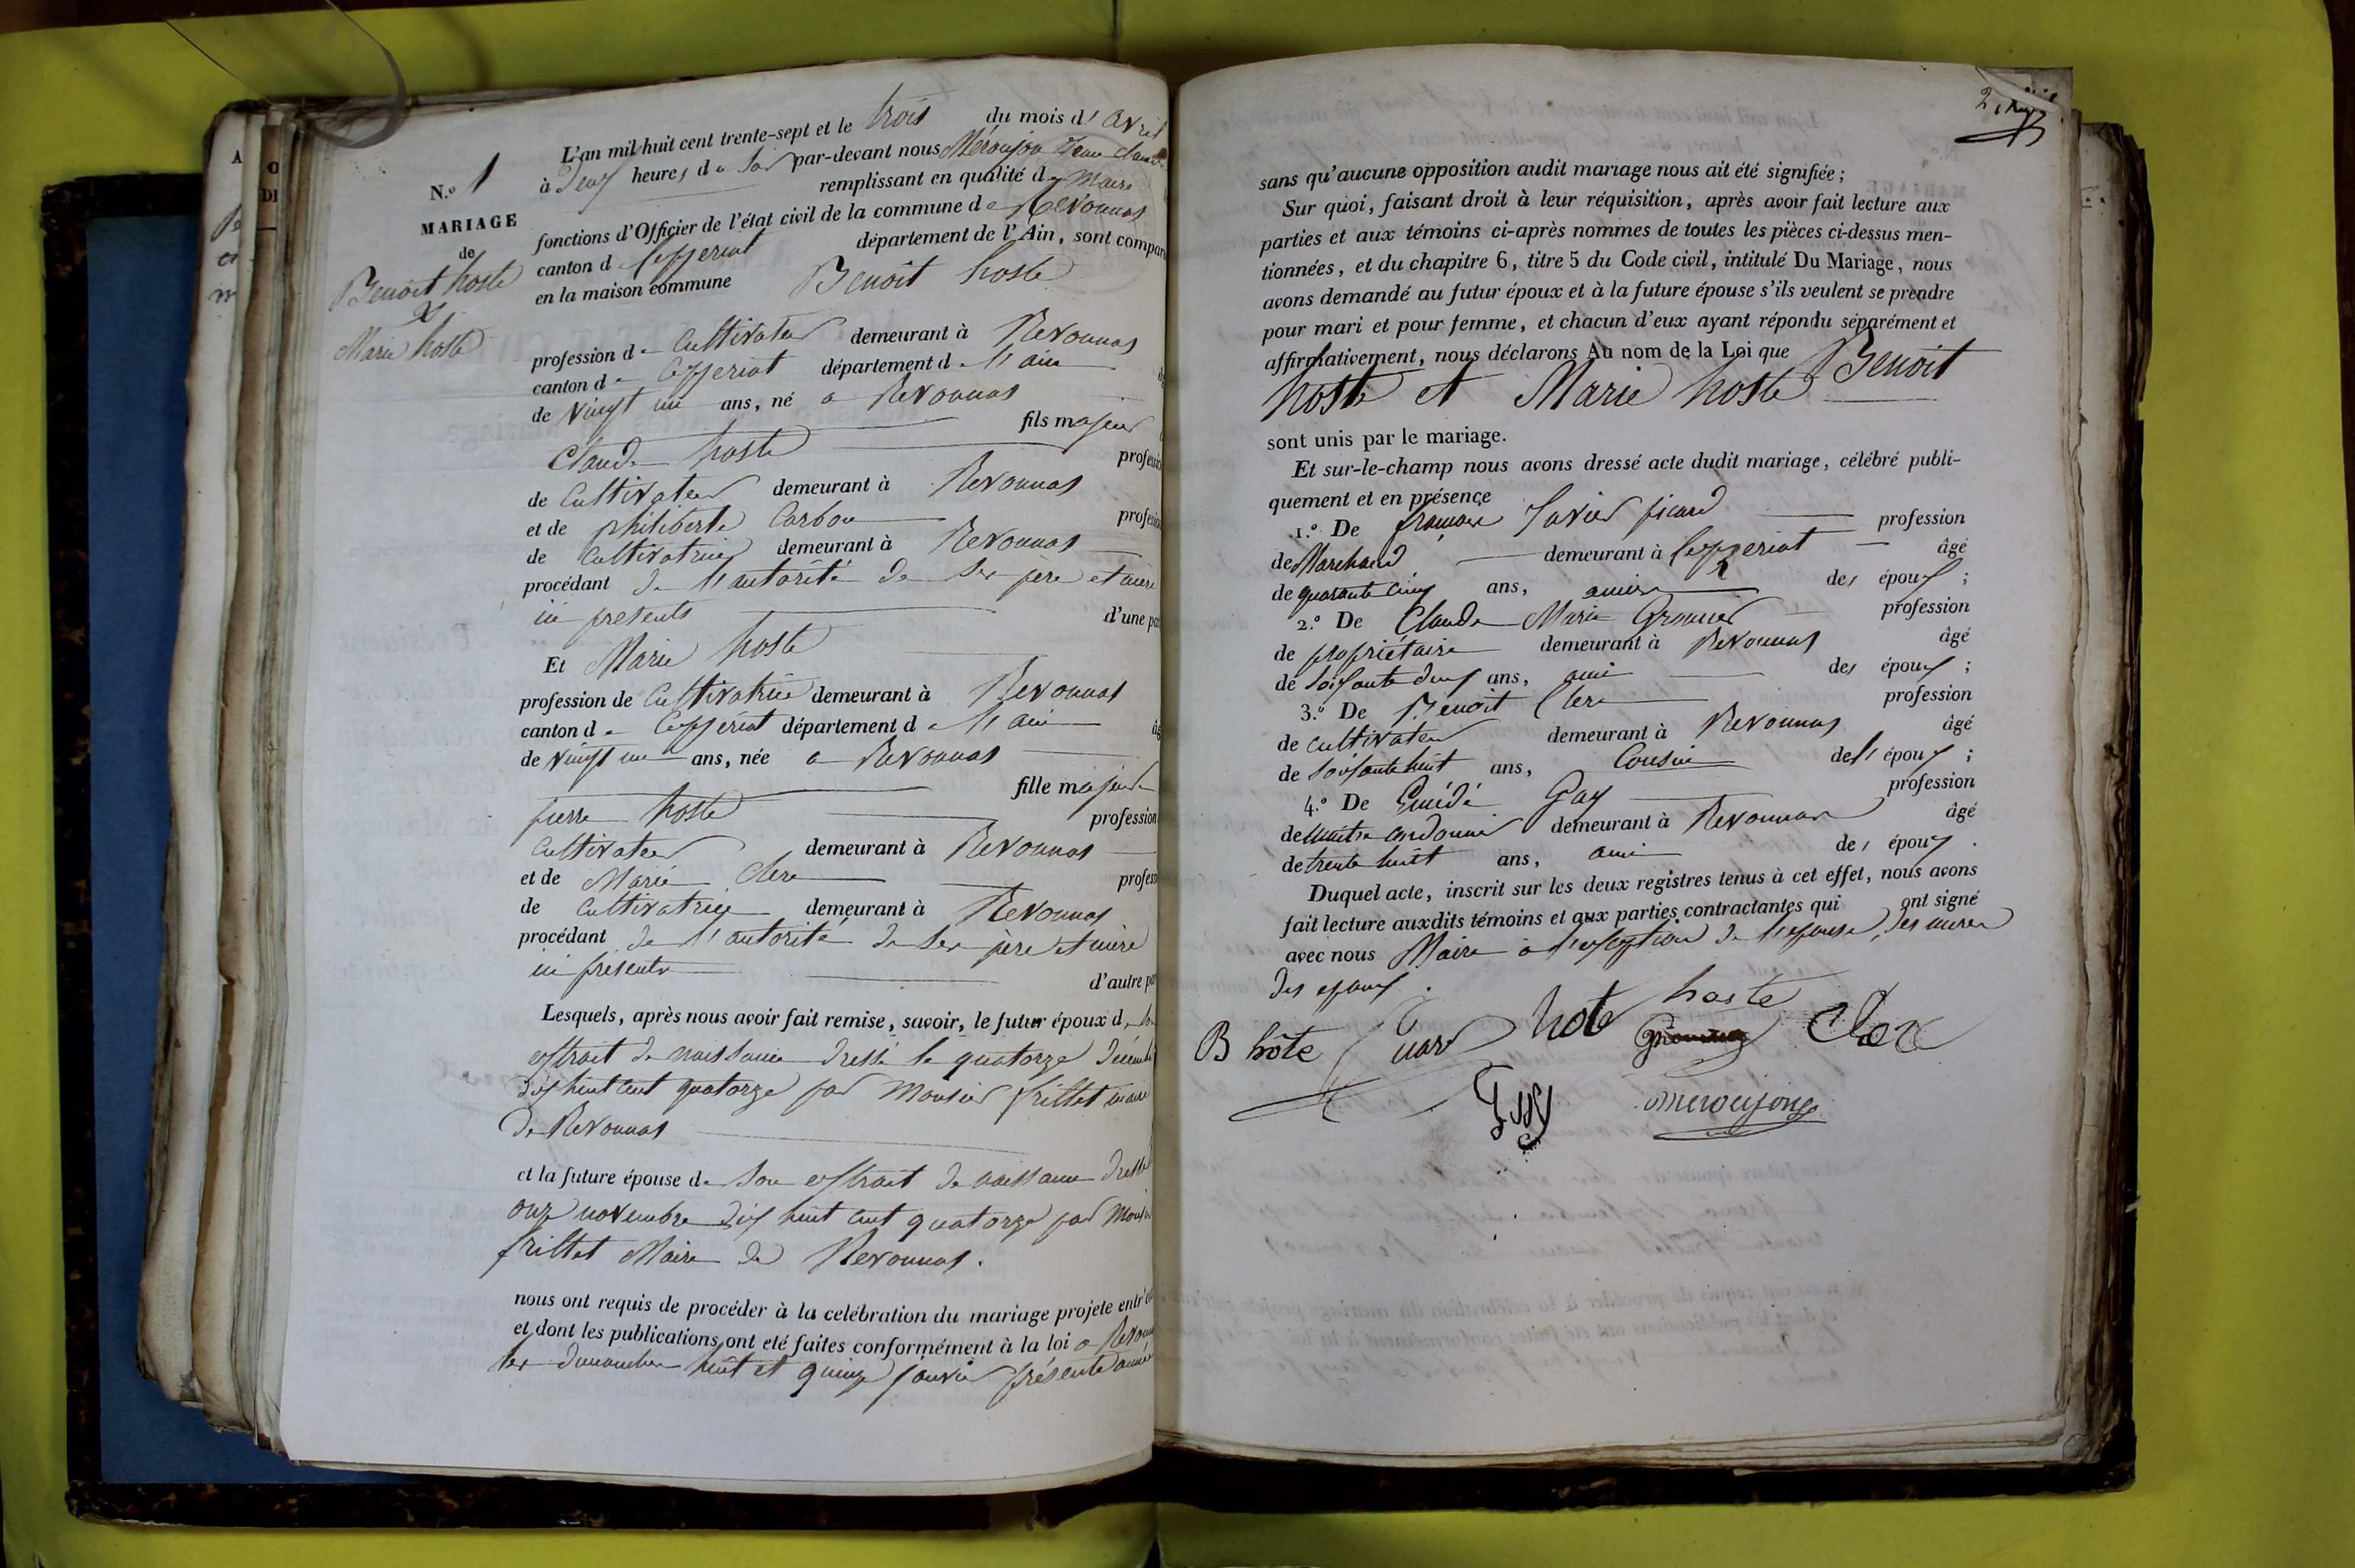 N.o 1
MARIAGE
de
Benoit hoste
&
Marie hoste
L'an mil huit cent trente-sept et le trois du mois d' avril
à Deux heures du Soir par-devant nous Méroujon Jean Claude
remplissant en qualité de Maire
fonctions d'Officier de l'état civil de la commune de Revonnas
canton de Ceyzeriat département de l'Ain, sont compar
en la maison commune Benoit hoste
profession de Cultivateur demeurant à Revonnas
canton de Ceyzeriat département de l'ain
de Vingt un ans, né a Revonnas
fils majeur
Claude hoste profession
de Cultivateur demeurant à Revonnas
et de philiberte Carbon profession
de Cultivatrice demeurant à Revonnas
procédant de l'autorité de ses pere et mere
ici presents d'une par
Et Marie hoste
profession de Cultivatrice demeurant à Revonnas
canton de Ceyzeriat département de l'ain âg
de vingt un ans, née a Revonnas
fille majeure
pierre hoste profession
Cultivateur demeurant à Revonnas
et de Marie Clerc profess
de Cultivatrice demeurant à Revonnas
procédant de l'autorité de ses père et mère
ici presents d'autre par
Lesquels, après nous avoir fait remise, savoir, le futur époux de son
extrait de naissance dressé le quatorze Décembre
dix huit cent quatorze par Monsieur frillet maire
de Revonnas
et la future épouse de Son extrait de naissance dressé
onze novembre dix huit cent quatorze par Monsieur
frillet Maire de Revonnas.
nous ont requis de procéder à la celébration du mariage projete entr'eux
et dont les publications ont eté faites conformément à la loi a Revonnas
les dimanches huit et quinze janvier présente année
sans qu'aucune opposition audit mariage nous ait été signifiée ;
Sur quoi, faisant droit à leur réquisition, après avoir fait lecture aux
parties et aux témoins ci-après nommes de toutes les pièces ci-dessus men-
tionnées, et du chapitre 6, titre 5 du Code civil, intitulé Du Mariage, nous
avons demandé au futur époux et à la future épouse s'ils veulent se prendre
pour mari et pour femme, et chacun d'eux ayant répondu séparément et
affirmativement, nous déclarons Au nom de la Loi que Benoit
hoste et Marie hoste
sont unis par le mariage.
Et sur-le-champ nous avons dressé acte dudit mariage, célébré publi-
quement et en présence
1.o De françois Xavier picard profession
de Marchand demeurant à Ceyzeriat âgé
de quarante cinq ans, ami des époux ;
2.o De Claude Marie profession
de propriétaire demeurant à Revonnas âgé
de soixante deux ans, ami des époux ;
3.o De Benoit Clerc profession
de cultivateur demeurant à Revonnas âgé
de Soixante huit ans, Cousin de l'époux ;
4.o De Gay profession
de maitre cordonnier demeurant à Revonnas âgé
de trente huit ans, ami des époux.
Duquel acte, inscrit sur les deux registres tenus à cet effet, nous avons
fait lecture auxdits témoins et aux parties contractantes qui ont signé
avec nous Maire à l'exception de l'epouse, des meres
des epoux.
hoste
B hôte hote Clerc
Gay